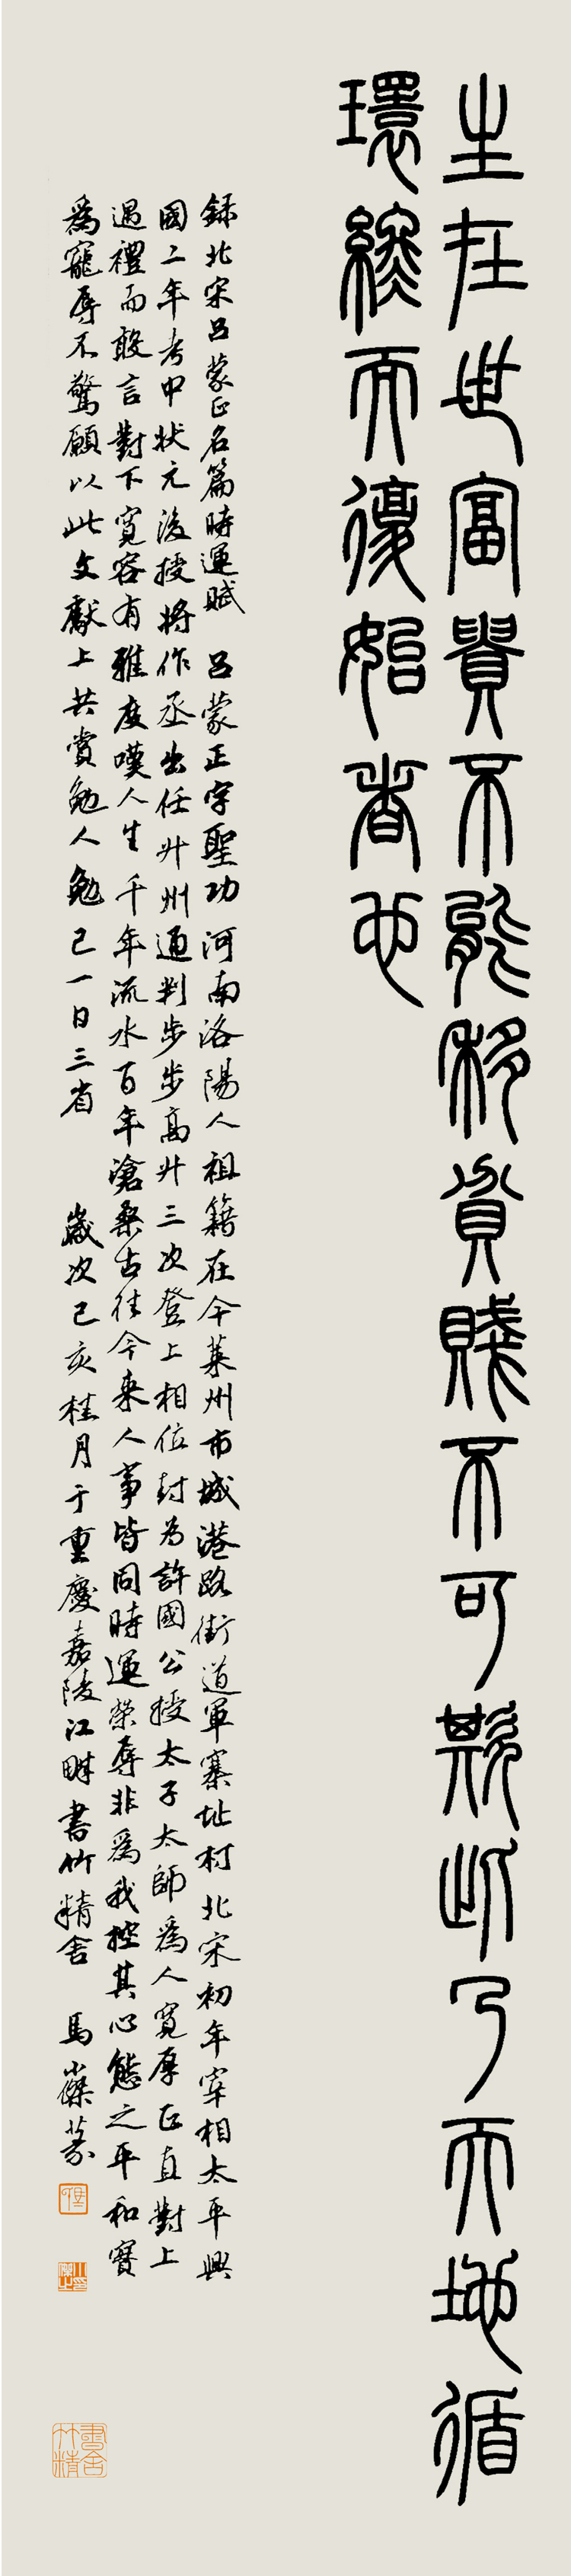 生在世富貴不能移貧賤不可欺此乃天地循
環終而復始者也
錄北宋呂蒙正名篇時運賦 呂蒙正字聖功河南洛陽人祖籍在今萊州市城港路街道軍寨址村北宋初年宰相太平興
國二年考中狀元後授將作丞出任升州通判步步高升三次登上相位封為許國公授太子太師為人寬厚正直對上
遇禮而敢言對下寬容有雅度嘆人生千年流水百年滄桑古往今來人事皆同時運榮辱非為我控其心態之平和實
為寵辱不驚願以此文獻上共賞勉人勉己一日三省 歲次己亥桂月于重慶嘉陵江畔書竹精舍 馬小傑篆
書舍竹精